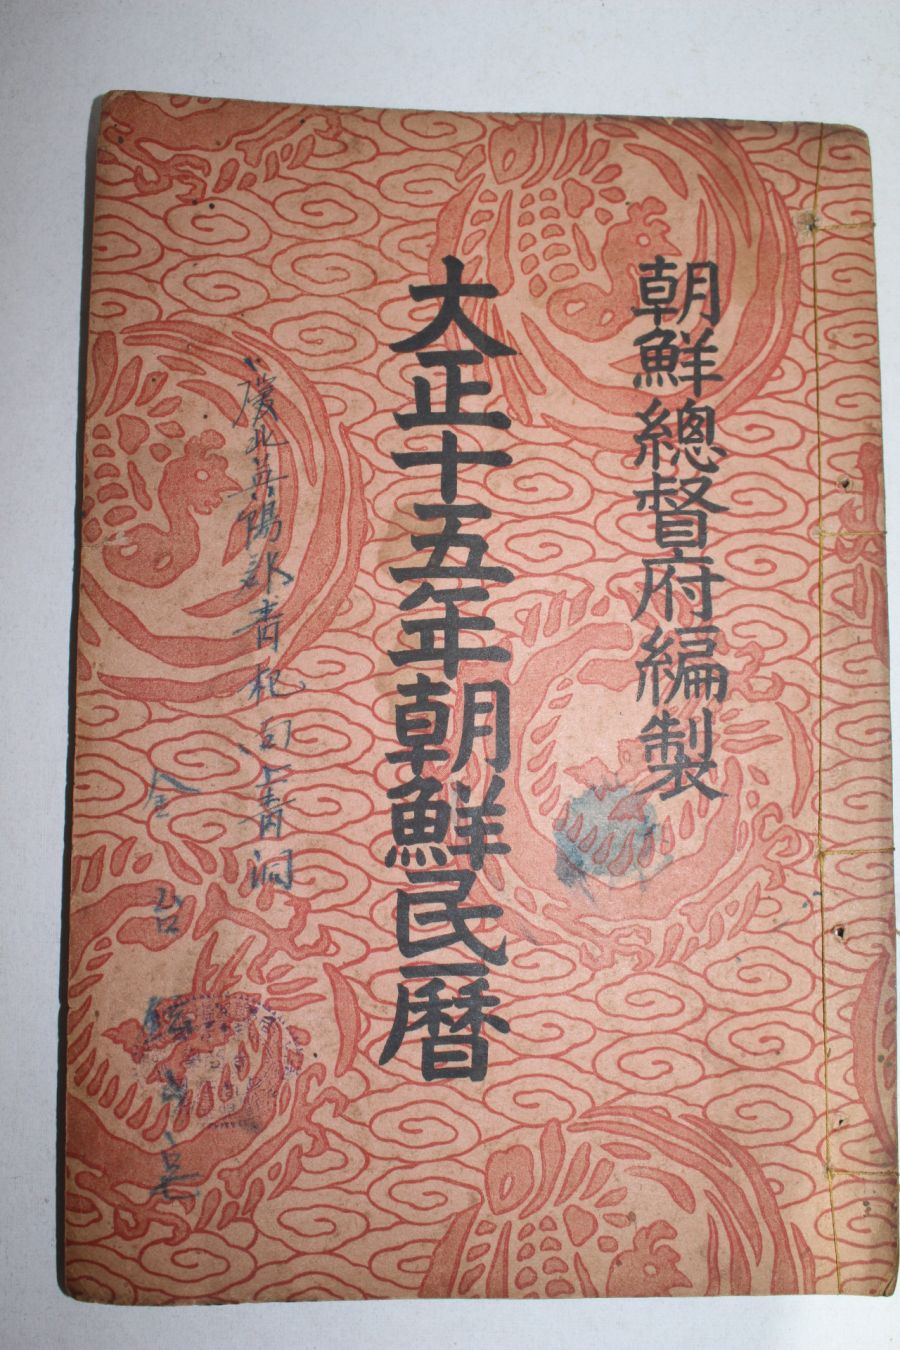 朝鮮總督府編製
大正十五年朝鮮民曆
慶北英陽郡靑杞面上靑洞
金台